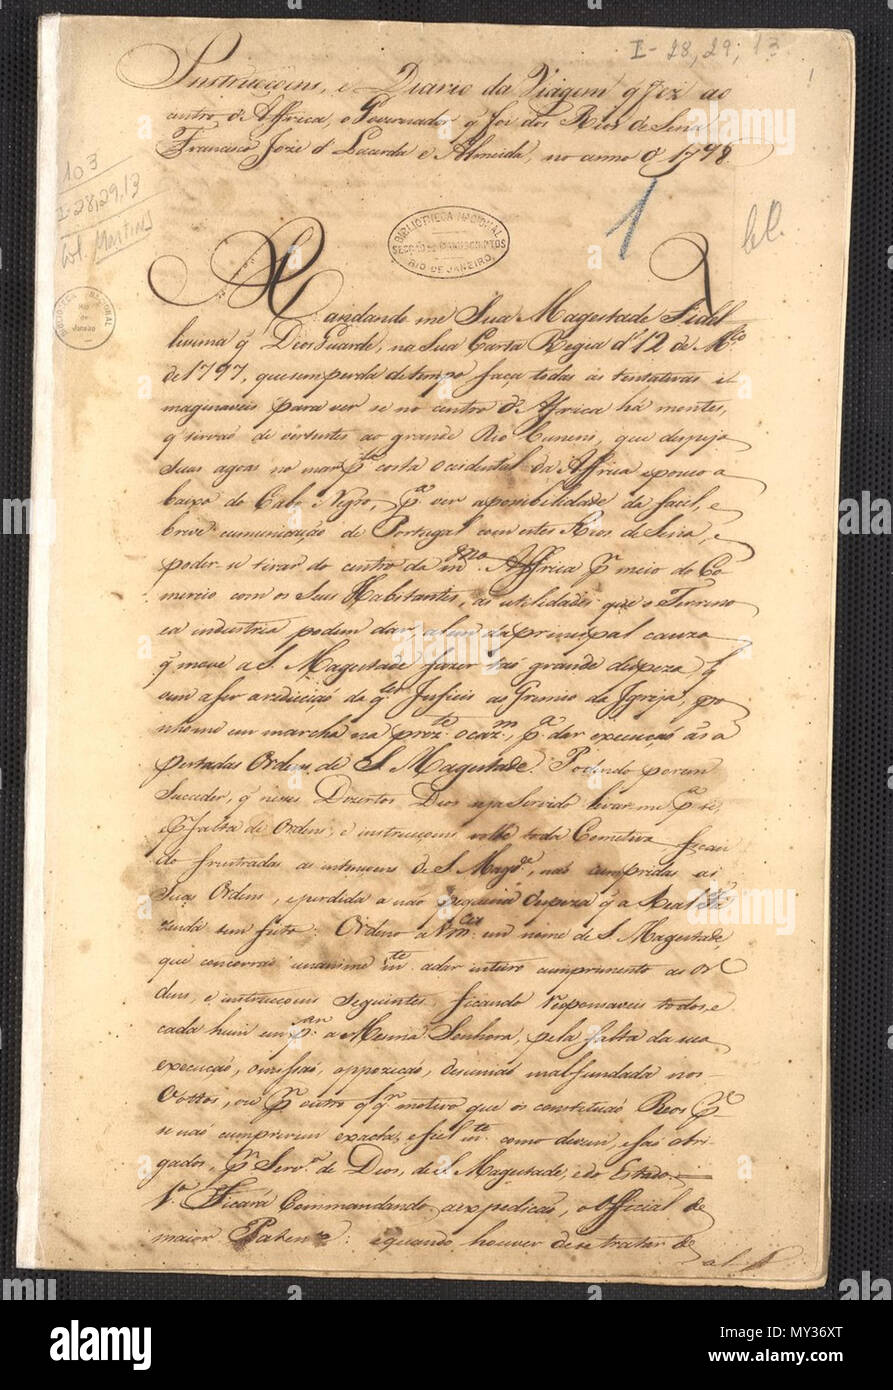 I-28,29,13
1
Instrucçoens, e Diario da Viagem q fez ao
centro d'Affrica, o Governador q foi dos Rios de Senna
Francisco Joze d' Lacerda e Almeida, no anno d' 1798.
103
I-28,29,13
Col. Martins
1
BIBLIOTHECA NACIONAL
SECÇÃO DE MANUSCRIPTOS
RIO DE JANEIRO
BIBLIOTECA NACIONAL
Rio
de
Janeiro
Mandando me Sua Magestade Fidel
lissima q' Deos Guarde, na Sua Carta Regia d' 12 de M.ço
de 1797, que sem perda de tempo faça todas as tentativas i
maginaveis para ver se no centro d'Affrica há montes,
q' sirvaõ de vertentes ao grande Rio Cunene, que despeja
suas agoas no mar p.la costa occidental da Affrica e pouco a
baixo do Cabo Negro, p.a ver a posibilidade da facil, e
breve cumunicaçaõ de Portugal com estes Rios de Sena, e
poder-se tirar do centro da m.ma Affrica p.r meio do Co
mercio com os Seus Habitantes, as utilidades que o Terreno
e a industria podem dar, alem da principal cauza
q' move a S. Magestade fazer taõ grande despeza, q'
vem a ser a redicciaõ da q.les Infieis ao Gremio da Igreja, po
nhome em marcha e ca prez.te o caz.m, p.a dar execuçaõ ás a
pontadas Ordens de S. Magestade. Podendo porem
Succeder, q' nesses Dezertos Deos seja Servido levar-me p.a si,
e p.r falta de Ordens, e instrucçoens volte toda Cometiva fican
do frustradas as intençoens de S. Mag.de, naõ cumpridas as
Suas Ordens, e perdida a naõ pequena despeza q' a Real Fa
zenda tem feito: Ordeno a Vm.ces em nome de S. Magestade,
que concorraõ unanime m.te a dar inteiro cumprimento as Or
dens, e instrucçoens seguintes, ficando responsaveis todos, e
cada hum em p.ar a Mesma Senhora, pela falta da sua
execuçaõ, omissaõ, oppoziçaõ, desuniaõ mal fundada nos
Vottos, ou p.r outro q'l q.r motivo que os constituaõ Reos p.r
se naõ cumprirem exacta, e fiel m.te como devem, e saõ obri
gados, p.r Serv.o de Deos, de S. Magestade, e do Estado.
1.o Ficará Commandando a expediçaõ, o Official de
maior Patente: e quando houver de se tratar de